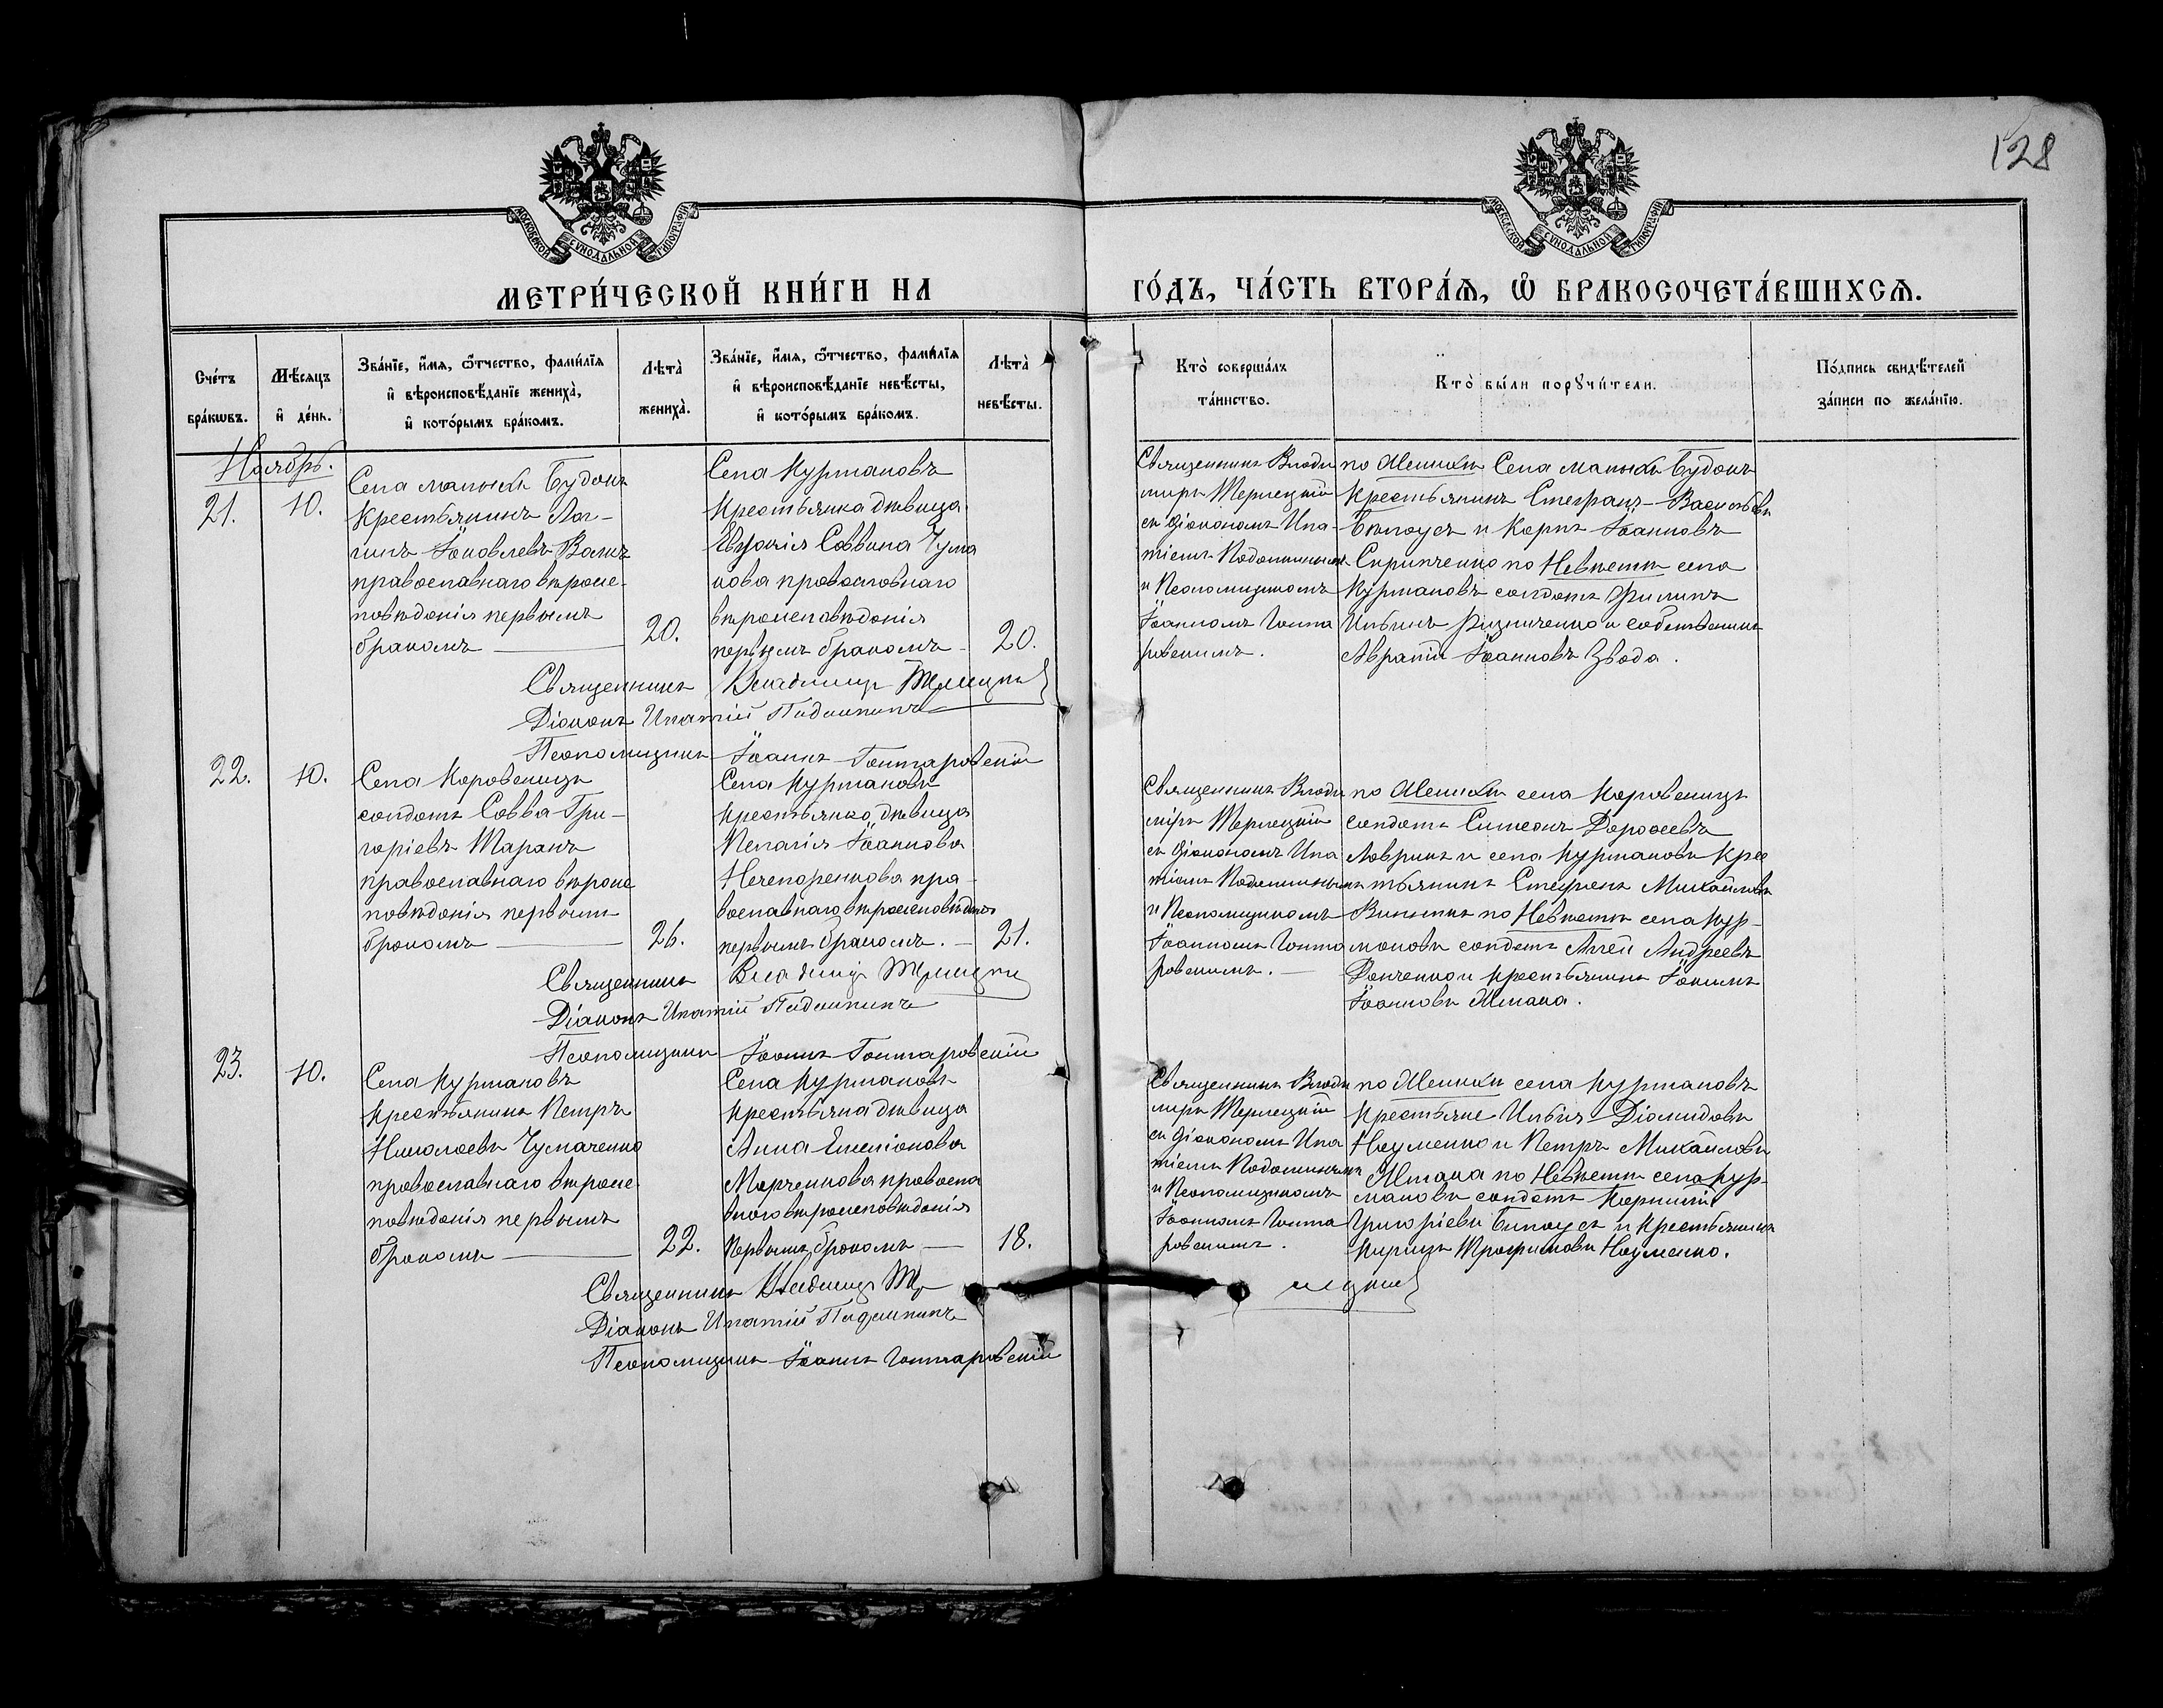 128
МОСКОВСКОЙ СѴНОДАЛЬНОЙ ТИПОГРАФІИ
МОСКОВСКОЙ СѴНОДАЛЬНОЙ ТИПОГРАФІИ
МЕТРИ́ЧЕСКОЙ КНИ́ГИ НА
ГО́ДЪ, ЧА́СТЬ ВТОРА́Ѧ, Ѡ҆ БРАКОСОЧЕТА́ВШИХСѦ.
Сче́тъ
бра́кѡвъ.
Мѣ́сяцъ
и҆ де́нь.
Зва́нїе, и҆́мѧ, ѻ҆́тчество, фами́лїѧ
и҆ вѣроисповѣ́данїе жениха̀,
и҆ кото́рымъ бра́комъ.
Лѣта̀
жениха̀.
Зва́нїе, и҆́мѧ, ѻ҆́тчество, фами́лїѧ
и҆ вѣроисповѣ́данїе невѣ́сты,
и҆ кото́рымъ бра́комъ.
Лѣта̀
невѣ́сты.
Кто̀ соверша́лъ
та́инство.
Кто̀ бы́ли порꙋчи́тели.
По́дпись свидѣ́телей
за́писи по жела́нїю.
Ноябрь.
21.
10.
Села малыхъ Будокъ
Крестьянинъ Лог-
гинъ Іоковлевъ
православнаго вѣроис-
повѣданія первымъ
бракомъ
20.
Села Курмановъ
крестьянка дѣвица
Евдокія Саввина Чума
кова православнаго
вѣроисповѣданія
первымъ бракомъ
20.
Священникъ Влади
миръ Терлецкій
съ діакономъ Ипа
тіемъ
и Псаломщикомъ
Іоанномъ Гонта
ровскимъ.
по Женихѣ Села малыхъ Будокъ
Крестьянинъ Стефанъ Васильевъ
Бѣлоусъ и Карпъ Іоанновъ
Скрипченко по Невѣстѣ села
Курмановъ солдатъ Филипъ
Ильинъ Ризниченко и собственникъ
Іоанновъ Звода.
Священникъ Владимиръ Терлецкій
Діаконъ Ипатій
Псаломщикъ Іоаннъ Гонтаровскій
22.
10.
Села Коровенецъ
солдатъ Савва Гри-
горіевъ Таранъ
православнаго вѣроис
повѣданія первымъ
бракомъ
26.
Села Курмановъ
крестьянка дѣвица
Пелагія Іоаннова
Нечепоренкова пра-
вославнаго вѣроисповѣданія
первымъ бракомъ.
21.
Священникъ Влади
міръ Терлецкій
съ діакономъ Ипа
тіемъ
и Псаломщикомъ
Іоанномъ Гонта
ровскимъ.
по Женихѣ села Коровенецъ
солдатъ Симеонъ Дороѳеевъ
Лавринъ и села Курмановъ крес
тьянинъ Михайловъ
по Невѣстѣ села Кур-
мановъ солдатъ Андреевъ
и крестьянинъ Іоакимъ
Іоанновъ
Священникъ Владимиръ Терлецкій
Діаконъ Ипатій
Псаломщикъ Іоаннъ Гонтаровскій
23.
10.
Села Курмановъ
крестьянинъ Петръ
Николаевъ Чумаченко
православнаго вѣроис-
повѣданія первымъ
бракомъ
22.
Села Курмановъ
крестьянка дѣвица
Анна Емеліонова
Марченкова правосла
внаго вѣроисповѣданія
первымъ бракомъ
18.
Священникъ Влади
миръ Терлецкій
съ діакономъ Ипа
тіемъ
и Псаломщикомъ
Іоанномъ Гонта
ровскимъ.
по Женихѣ села Курмановъ
крестьяне Илья Діомидовъ
Науменко и Петръ Михайловъ
по Невѣстѣ села Кур-
мановъ солдатъ Корнилій
Григоріевъ Билоусъ и крестьянинъ
Трофимовъ Науменко.
Священникъ Владимиръ Тер
лецкій
Діаконъ Ипатій
Псаломщикъ Іоаннъ Гонтаровскій